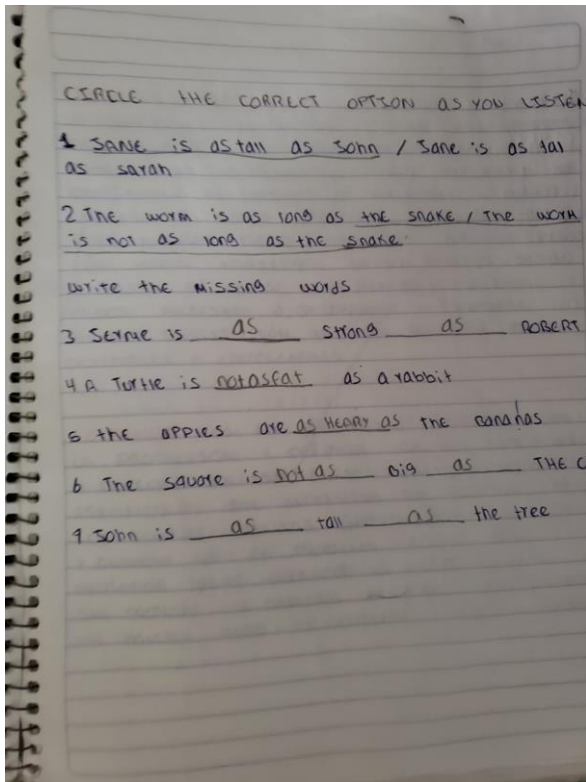 CIRCLE THE CORRECT OPTION as YOU LISTEN
1 JANE is as tall as John / Jane is as tal
as sarah
2 The worm is as long as the snake / The worm
is not as long as the snake.
write the Missing words
3 is as strong as ROBERT
4 A Turtle is not as fat as a rabbit
5 the apples are as HEAVY as the bananas
6 The square is not as big as THE C
9 John is as tall as the tree